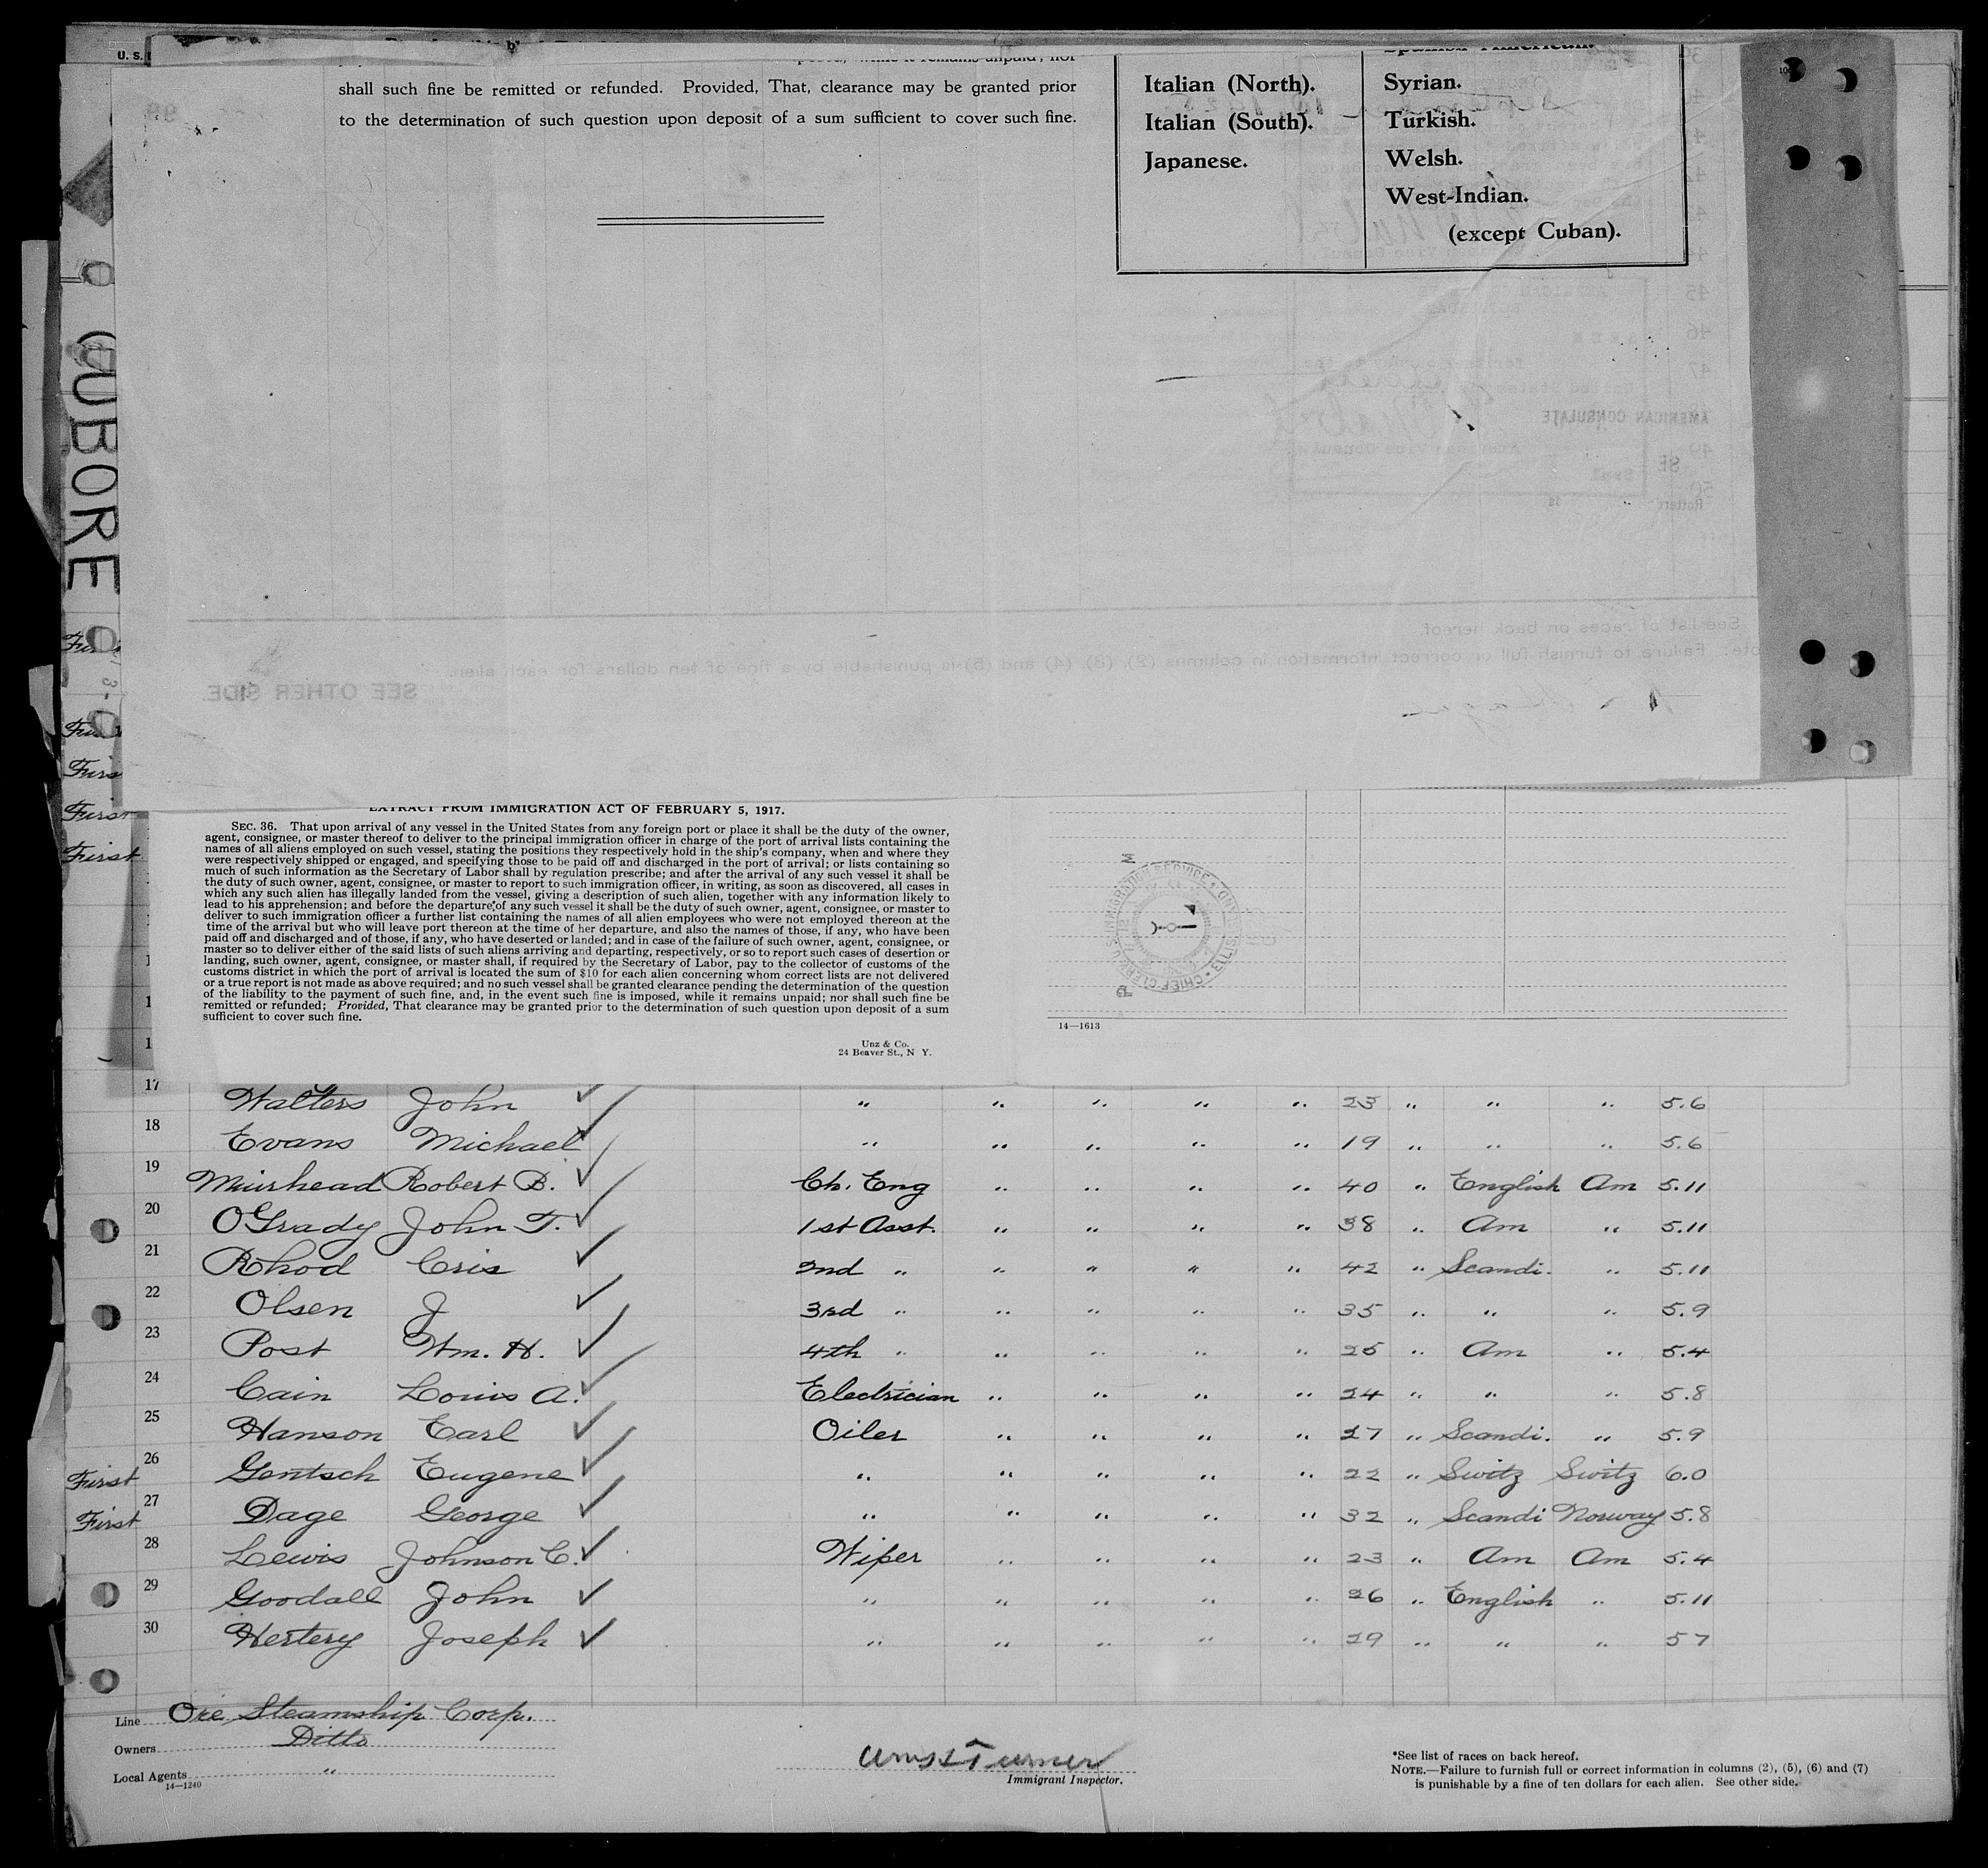 U. S.
shall such fine be remitted or refunded. Provided, That, clearance may be granted prior
to the determination of such question upon deposit of a sum sufficient to cover such fine.
Italian (North).
Italian (South).
Japanese.
Syrian.
Turkish.
Welsh.
West-Indian.
(except Cuban).
CUBORE
45
46
47
AMERICAN CONSULATE
49
50
See list of races on back hereof.
Note: Failure to furnish full or correct information in columns (2), (3), (4) and (5) is punishable by a fine of ten dollars for each alien.
SEE OTHER SIDE
First
First
EXTRACT FROM IMMIGRATION ACT OF FEBRUARY 5, 1917.
SEC. 36. That upon arrival of any vessel in the United States from any foreign port or place it shall be the duty of the owner,
agent, consignee, or master thereof to deliver to the principal immigration officer in charge of the port of arrival lists containing the
names of all aliens employed on such vessel, stating the positions they respectively hold in the ship's company, when and where they
were respectively shipped or engaged, and specifying those to be paid off and discharged in the port of arrival; or lists containing so
much of such information as the Secretary of Labor shall by regulation prescribe; and after the arrival of any such vessel it shall be
the duty of such owner, agent, consignee, or master to report to such immigration officer, in writing, as soon as discovered, all cases in
which any such alien has illegally landed from the vessel, giving a description of such alien, together with any information likely to
lead to his apprehension; and before the departure of any such vessel it shall be the duty of such owner, agent, consignee, or master to
deliver to such immigration officer a further list containing the names of all alien employees who were not employed thereon at the
time of the arrival but who will leave port thereon at the time of her departure, and also the names of those, if any, who have been
paid off and discharged and of those, if any, who have deserted or landed; and in case of the failure of such owner, agent, consignee, or
master so to deliver either of the said lists of such aliens arriving and departing, respectively, or so to report such cases of desertion or
landing, such owner, agent, consignee, or master shall, if required by the Secretary of Labor, pay to the collector of customs of the
customs district in which the port of arrival is located the sum of $10 for each alien concerning whom correct lists are not delivered
or a true report is not made as above required; and no such vessel shall be granted clearance pending the determination of the question
of the liability to the payment of such fine, and, in the event such fine is imposed, while it remains unpaid; nor shall such fine be
remitted or refunded; Provided, That clearance may be granted prior to the determination of such question upon deposit of a sum
sufficient to cover such fine.
Unz & Co.
24 Beaver St., N Y.
14—1613
17 Walters John " " " " " 23 " " " 5.6
18 Evans Michael " " " " " 19 " " " 5.6
19 Muirhead Robert B. Ch. Eng " " " " 40 " English Am 5.11
20 O'Grady John T. 1st Asst. " " " " 38 " Am " 5.11
21 Rhod Cris 2nd " " " " " 42 " Scandi. " 5.11
22 Olsen J 3rd " " " " " 35 " " " 5.9
23 Post Wm. H. 4th " " " " " 25 " Am " 5.4
24 Cain Louis A. Electrician " " " " 24 " " " 5.8
25 Hanson Earl Oiler " " " " 27 " Scandi. " 5.9
First 26 Gentsch Eugene " " " " " 22 " Switz Switz 6.0
First 27 Dage George " " " " " 32 " Scandi Norway 5.8
28 Lewis Johnson C. Wiper " " " " 23 " Am Am 5.4
29 Goodall John " " " " " 26 " English " 5.11
30 Hertery Joseph " " " " " 29 " " " 5 7
Line Ore Steamship Corp.
Owners Ditto
Local Agents "
14—1240
Turner
Immigrant Inspector.
*See list of races on back hereof.
NOTE.—Failure to furnish full or correct information in columns (2), (5), (6) and (7)
is punishable by a fine of ten dollars for each alien. See other side.